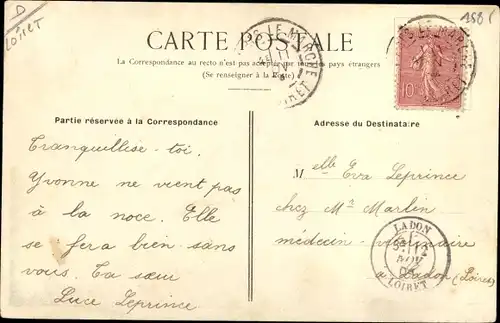 D
Loiret
CARTE POSTALE
La Correspondance au recto n'est pas acceptée par tous les pays étrangers
(Se renseigner à la Poste)
10
Partie réservée à la Correspondance
Adresse du Destinataire
Tranquillise-toi.
Yvonne ne vient pas
à la noce. Elle
se fera bien sans
vous. Ta sœur
Luce Leprince
Melle Eva Leprince
chez Mr Marlin
médecin-vétérinaire
Ladon (Loiret)
LADON
NOV
LOIRET